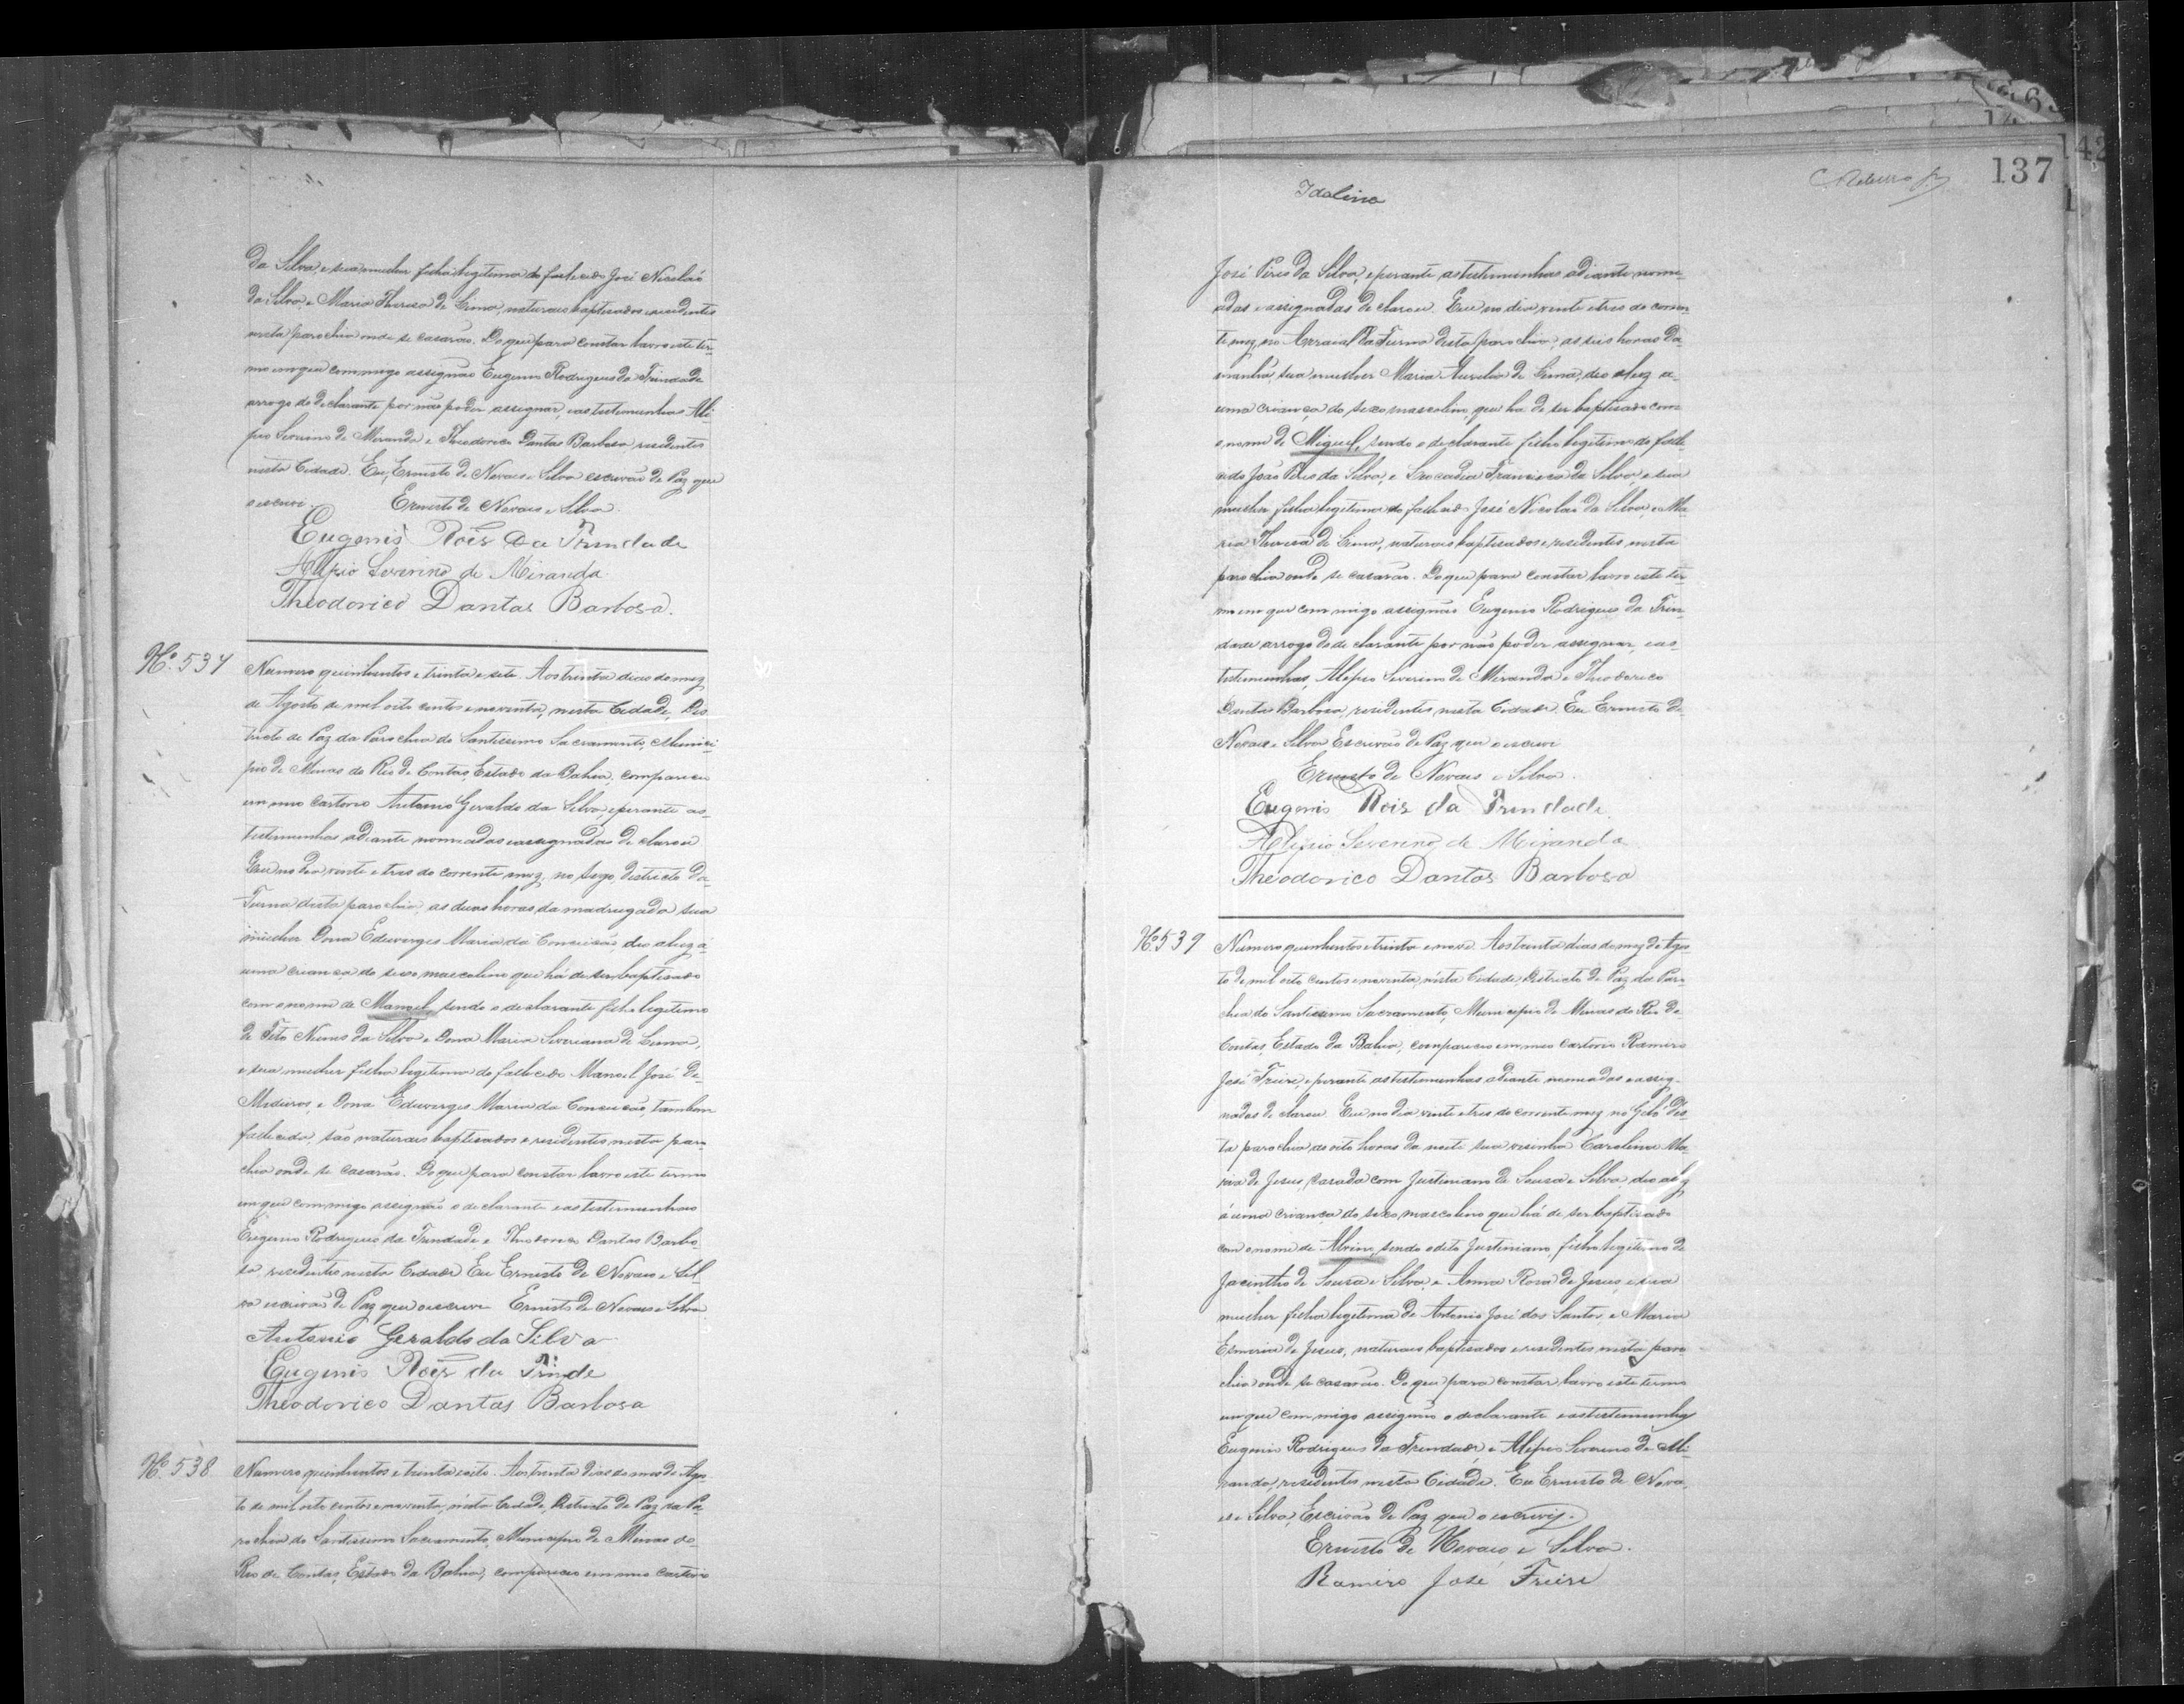 da Silva, e sua mulher filha legitima do fallecido José Nicolaó
da Silva, e Maria Thereza de Lima, naturaes baptisados e residentes
nesta parochia onde se casarão. Do que para constar lavro este ter-
mo em que commigo assignão Eugenio Rodrigues da Trindade
arrogo do declarante por não poder assignar, e as testemunhas Ali-
pio Severino de Miranda e Theodorico Dantas Barbosa, residentes
nesta Cidade. Eu, Ernesto de Novaes e Silva escrivão de Paz que
o escrivi. Ernesto de Novaes e Silva.
Eugenio Roiz da Trindade
Alipio Severino de Miranda
Theodorico Dantas Barbosa.
Nº. 537
Numero quinhentos e trinta e sete. Aos trinta dias do mez
de Agosto de mil oito centos e noventa, nesta Cidade, Dis-
tricto de Paz da Parochia do Santissimo Sacramento, Munici-
pio de Minas do Rio de Contas, Estado da Bahia, compareceu
em meu Cartorio Antonio Geraldo da Silva, e perante as
testemunhas adiante nomeadas e assignadas declarou
Que no dia vinte e tres do corrente mez, no districto da
Furna desta parochia, as duas horas da madrugada sua
mulher Dona Eduverges Maria da Conceição deo a luz a
uma criança do sexo mascolino que há de ser baptisado
com o nome de Manoel, sendo o declarante filho legitimo
de Tito Nunes da Silva e Dona Maria Severiana de Lima,
e sua mulher filha legitima do fallecido Manoel José de
Medeiros, e Dona Eduverges Maria da Conceição, tambem
fallecida, são naturaes baptisados e residentes nesta paro
chia onde se casarão. Do que para constar lavro este termo
em que commigo assignão o declarante e as testemunhas
Eugenio Rodrigues da Trindade e Theodorico Dantas Barbo-
sa, residentes nesta Cidade Eu Ernesto de Novaes e Sil-
va escrivão de Paz que o escrivi Ernesto de Novaes e Silva
Antonio Geraldo da Silva
Eugenio Roiz da Trinde
Theodorico Dantas Barbosa
Nº. 538
Numero quinhentos e trinta e oito. Aos trinta dias do mes de Agos-
to de mil oito centos e noventa, nesta Cidade, Districto de Paz da Pa-
rochia do Santissimo Sacramento, Municipio de Minas do
Rio de Contas, Estado da Bahia, compareceo em meu Cartorio
137
Idalina
José Pires da Silva, e perante as testemunhas adiante nome-
adas e assignadas declarou. Que no dia vinte e tres do corren-
te mez, no Arraial da Furna desta parochia, as seis horas da
manhã, sua mulher Maria Aurelia de Lima, deo a luz a
uma criança do sexo mascolino, que ha de ser baptisado com
o nome de Miguel, sendo o declarante filho legitimo do falle-
cido João Pires da Silva, e Leocadia Francisca da Silva, e sua
mulher filha legitima do fallecido José Nicolaó da Silva, e Ma-
ria Thereza de Lima, naturaes baptisados e residentes nesta
parochia onde se casarão. Do que para constar lavro este ter-
mo em que com migo assignão Eugenio Rodrigues da Trin-
dade arrogo do declarante por não poder assignar, e as
testemunhas, Alipio Severino de Miranda e Theodorico
Dantas Barbosa, residentes nesta Cidade. Eu Ernesto de
Novaes e Silva Escrivão de Paz que o escrivi
Ernesto de Novaes e Silva.
Eugenio Roiz da Trindade
Alipio Severino de Miranda
Theodorico Dantas Barbosa
Nº. 539
Numero quinhentos e trinta e nove. Aos trinta dias do mez de Agos-
to de mil oito centos e noventa, nesta Cidade, Districto de Paz da Paro
chia do Santissimo Sacramento, Municipio de Minas do Rio de
Contas, Estado da Bahia, compareceo em meo Cartorio Ramiro
José Freire, e perante as testemunhas adiante nomeadas e assig-
nadas declarou. Que no dia vinte e tres do corrente mez, no Geló des-
ta parochia as oito horas da noite sua vesinha Carolina Ma-
ria de Jesus, casada com Justiniano de Sousa e Silva, deo a luz
á uma criança do sexo mascolino que há de ser baptisado
com o nome de Abrino, sendo o dito Justiniano, filho legitimo de
Jacintho de Sousa e Silva, e Anna Rosa de Jesus, e sua
mulher filha legitima de Antonio José dos Santos, e Maria
de Jesus, naturaes baptisados e residentes nesta paro-
chia onde se casarão. Do que para constar lavro este termo
em que com migo assignão o declarante e as testemunhas
Eugenio Rodrigues da Trindade, e Alipio Severino de Mi-
randa, residentes nesta Cidade. Eu Ernesto de Nova-
es e Silva, Escrivão de Paz que o escrivi.
Ernesto de Novaes e Silva.
Ramiro José Freire